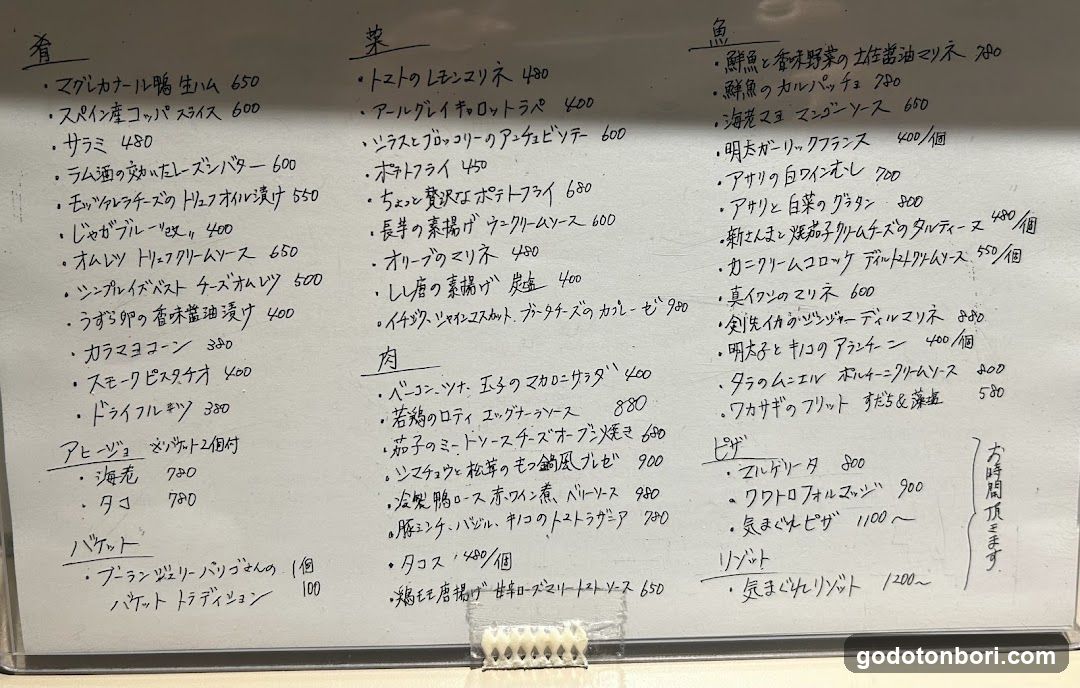 肴
・マグレカナール鴨 生ハム 650
・スペイン産コッパ スライス 600
・サラミ 480
・ラム酒の効いたレーズンバター 600
・モッツァレラチーズのトリュフオイル漬け 550
・じゃがブルー"改" 400
・オムレツ トリュフクリームソース 650
・シンプルイズベスト チーズオムレツ 500
・うずら卵の香味醤油漬け 400
・カラマヨコーン 380
・スモークピスタチオ 400
・ドライフルーツ 380
アヒージョ ※バケット2個付
・海老 780
・タコ 780
バケット
・ブーランジェリーパリゴさんの 1個
バケット トラディション 100
菜
・トマトのレモンマリネ 480
・アールグレイキャロットラペ 400
・シラスとブロッコリーのアンチョビソテー 600
・ポテトフライ 450
・ちょっと贅沢なポテトフライ 680
・長芋の素揚げ ウニクリームソース 600
・オリーブのマリネ 480
・しし唐の素揚げ 炭塩 400
・イチジク、シャインマスカット、ブラータチーズのカプレーゼ 980
肉
・ベーコン、ツナ、玉子のマカロニサラダ 400
・若鶏のロティ エッグナーラソース 880
・茄子のミートソースチーズオーブン焼き 680
・シマチョウと松茸のもつ鍋風ブレゼ 900
・冷製鴨ロース 赤ワイン煮 ベリーソース 980
・豚ミンチ、バジル、キノコのトマトラザニア 780
・タコス 480/個
・鶏モモ唐揚げ 甘辛ローズマリートマトソース 650
魚
・鮮魚と香味野菜の土佐醤油マリネ 780
・鮮魚のカルパッチョ 780
・海老マヨ マンゴーソース 650
・明太ガーリックフランス 400/個
・アサリの白ワインむし 700
・アサリと白菜のグラタン 800
・新さんまと焼茄子クリームチーズのタルティーヌ 480/個
・カニクリームコロッケ ディルトマトクリームソース 550/個
・真イワシのマリネ 600
・剣先イカのジンジャーディルマリネ 880
・明太子とキノコのアランチーニ 400/個
・タラのムニエル ポルチーニクリームソース 800
・ワカサギのフリット すだち&藻塩 580
ピザ
・マルゲリータ 800
・クワトロフォルマッジ 900
・気まぐれピザ 1100〜
リゾット
・気まぐれリゾット 1200〜
お時間頂きます。
godotonbori.com